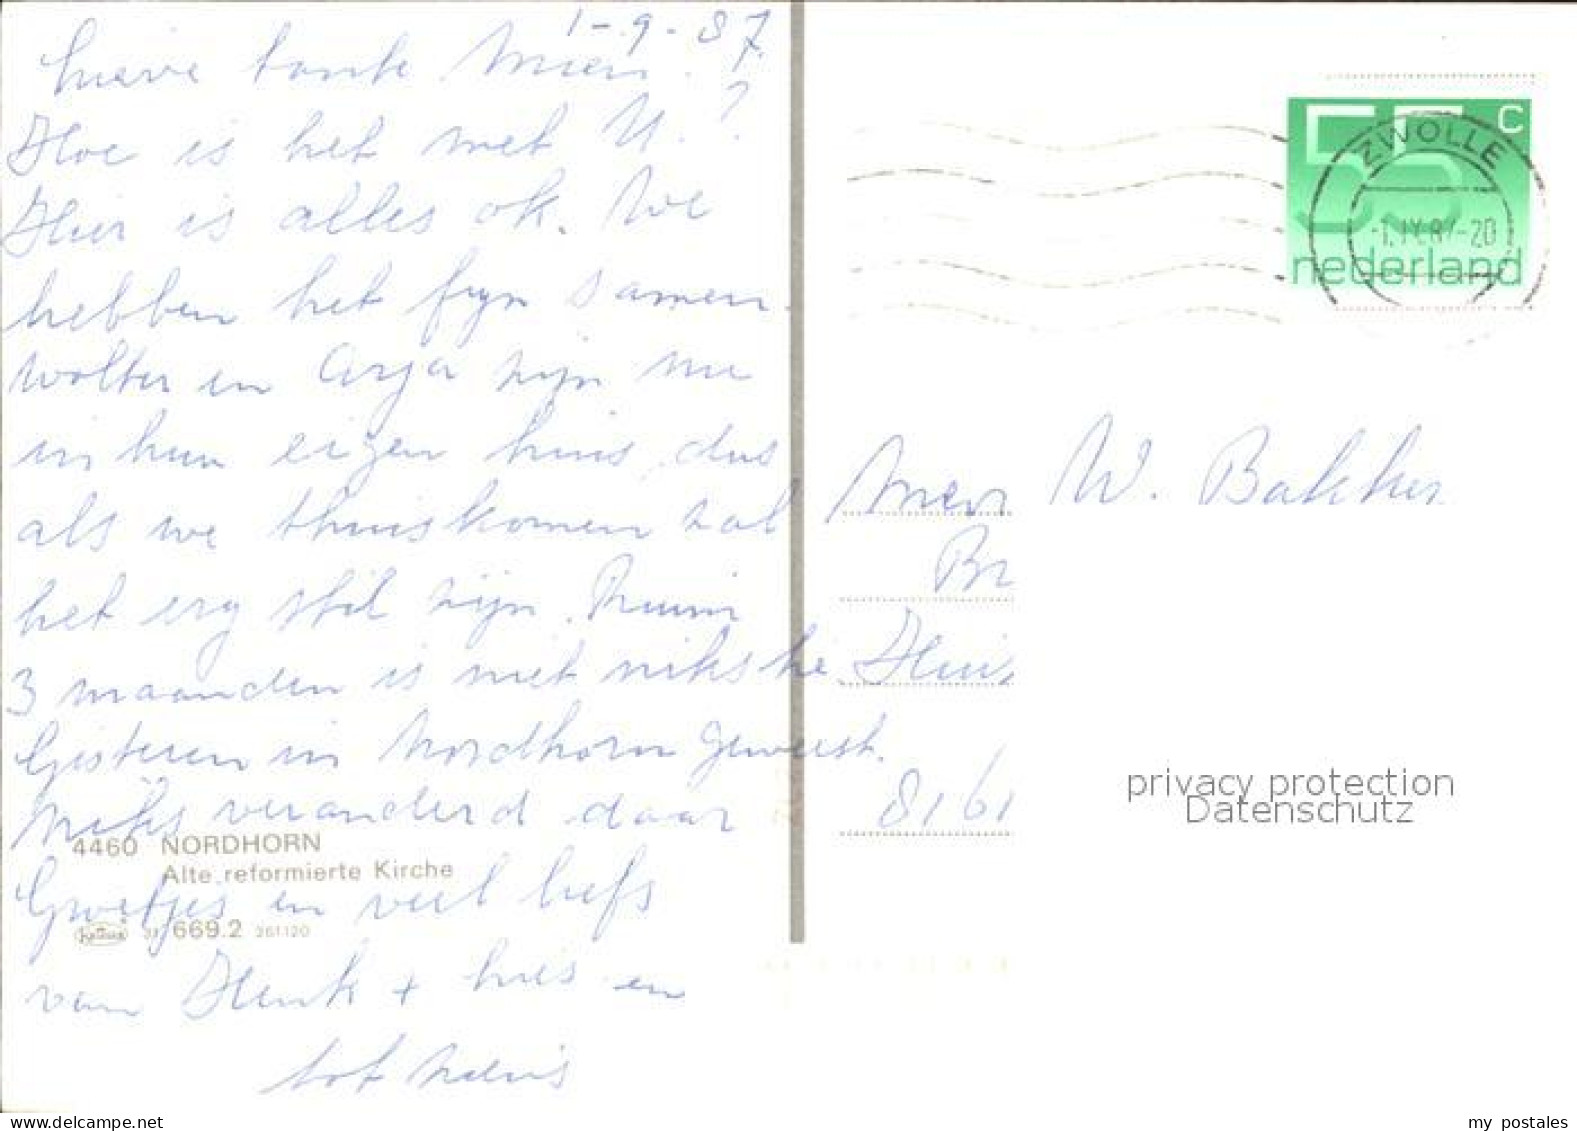 1-9-87
Lieve tante Mien.
Hoe is het met U.?
Hier is alles ok. We
hebben het fijn samen.
Wolter en Arja zijn nu
in hun eigen huis, dus
als we thuiskomen zal
het erg stil zijn. Ruim
3 maanden is niet niks hè
Gisteren in Nordhorn geweest.
Niks veranderd daar
4460 NORDHORN
Alte reformierte Kirche
Groetjes en veel liefs
669.2 261120
van Henk + Lies en
tot ziens
55 c
nederland
ZWOLLE
-1.IX.87-20
Mevr W. Bakker
Br
Huis
8161
privacy protection
Datenschutz
www.delcampe.net
my_postales